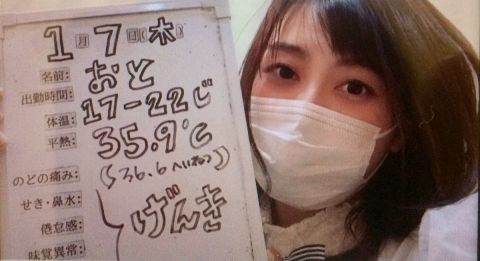 1月7日(木)
名前: おと
出勤時間: 17-22じ
体温: 35.9℃
平熱: (36.6へいねつ)
のどの痛み:
せき・鼻水: げんき
倦怠感:
味覚異常: